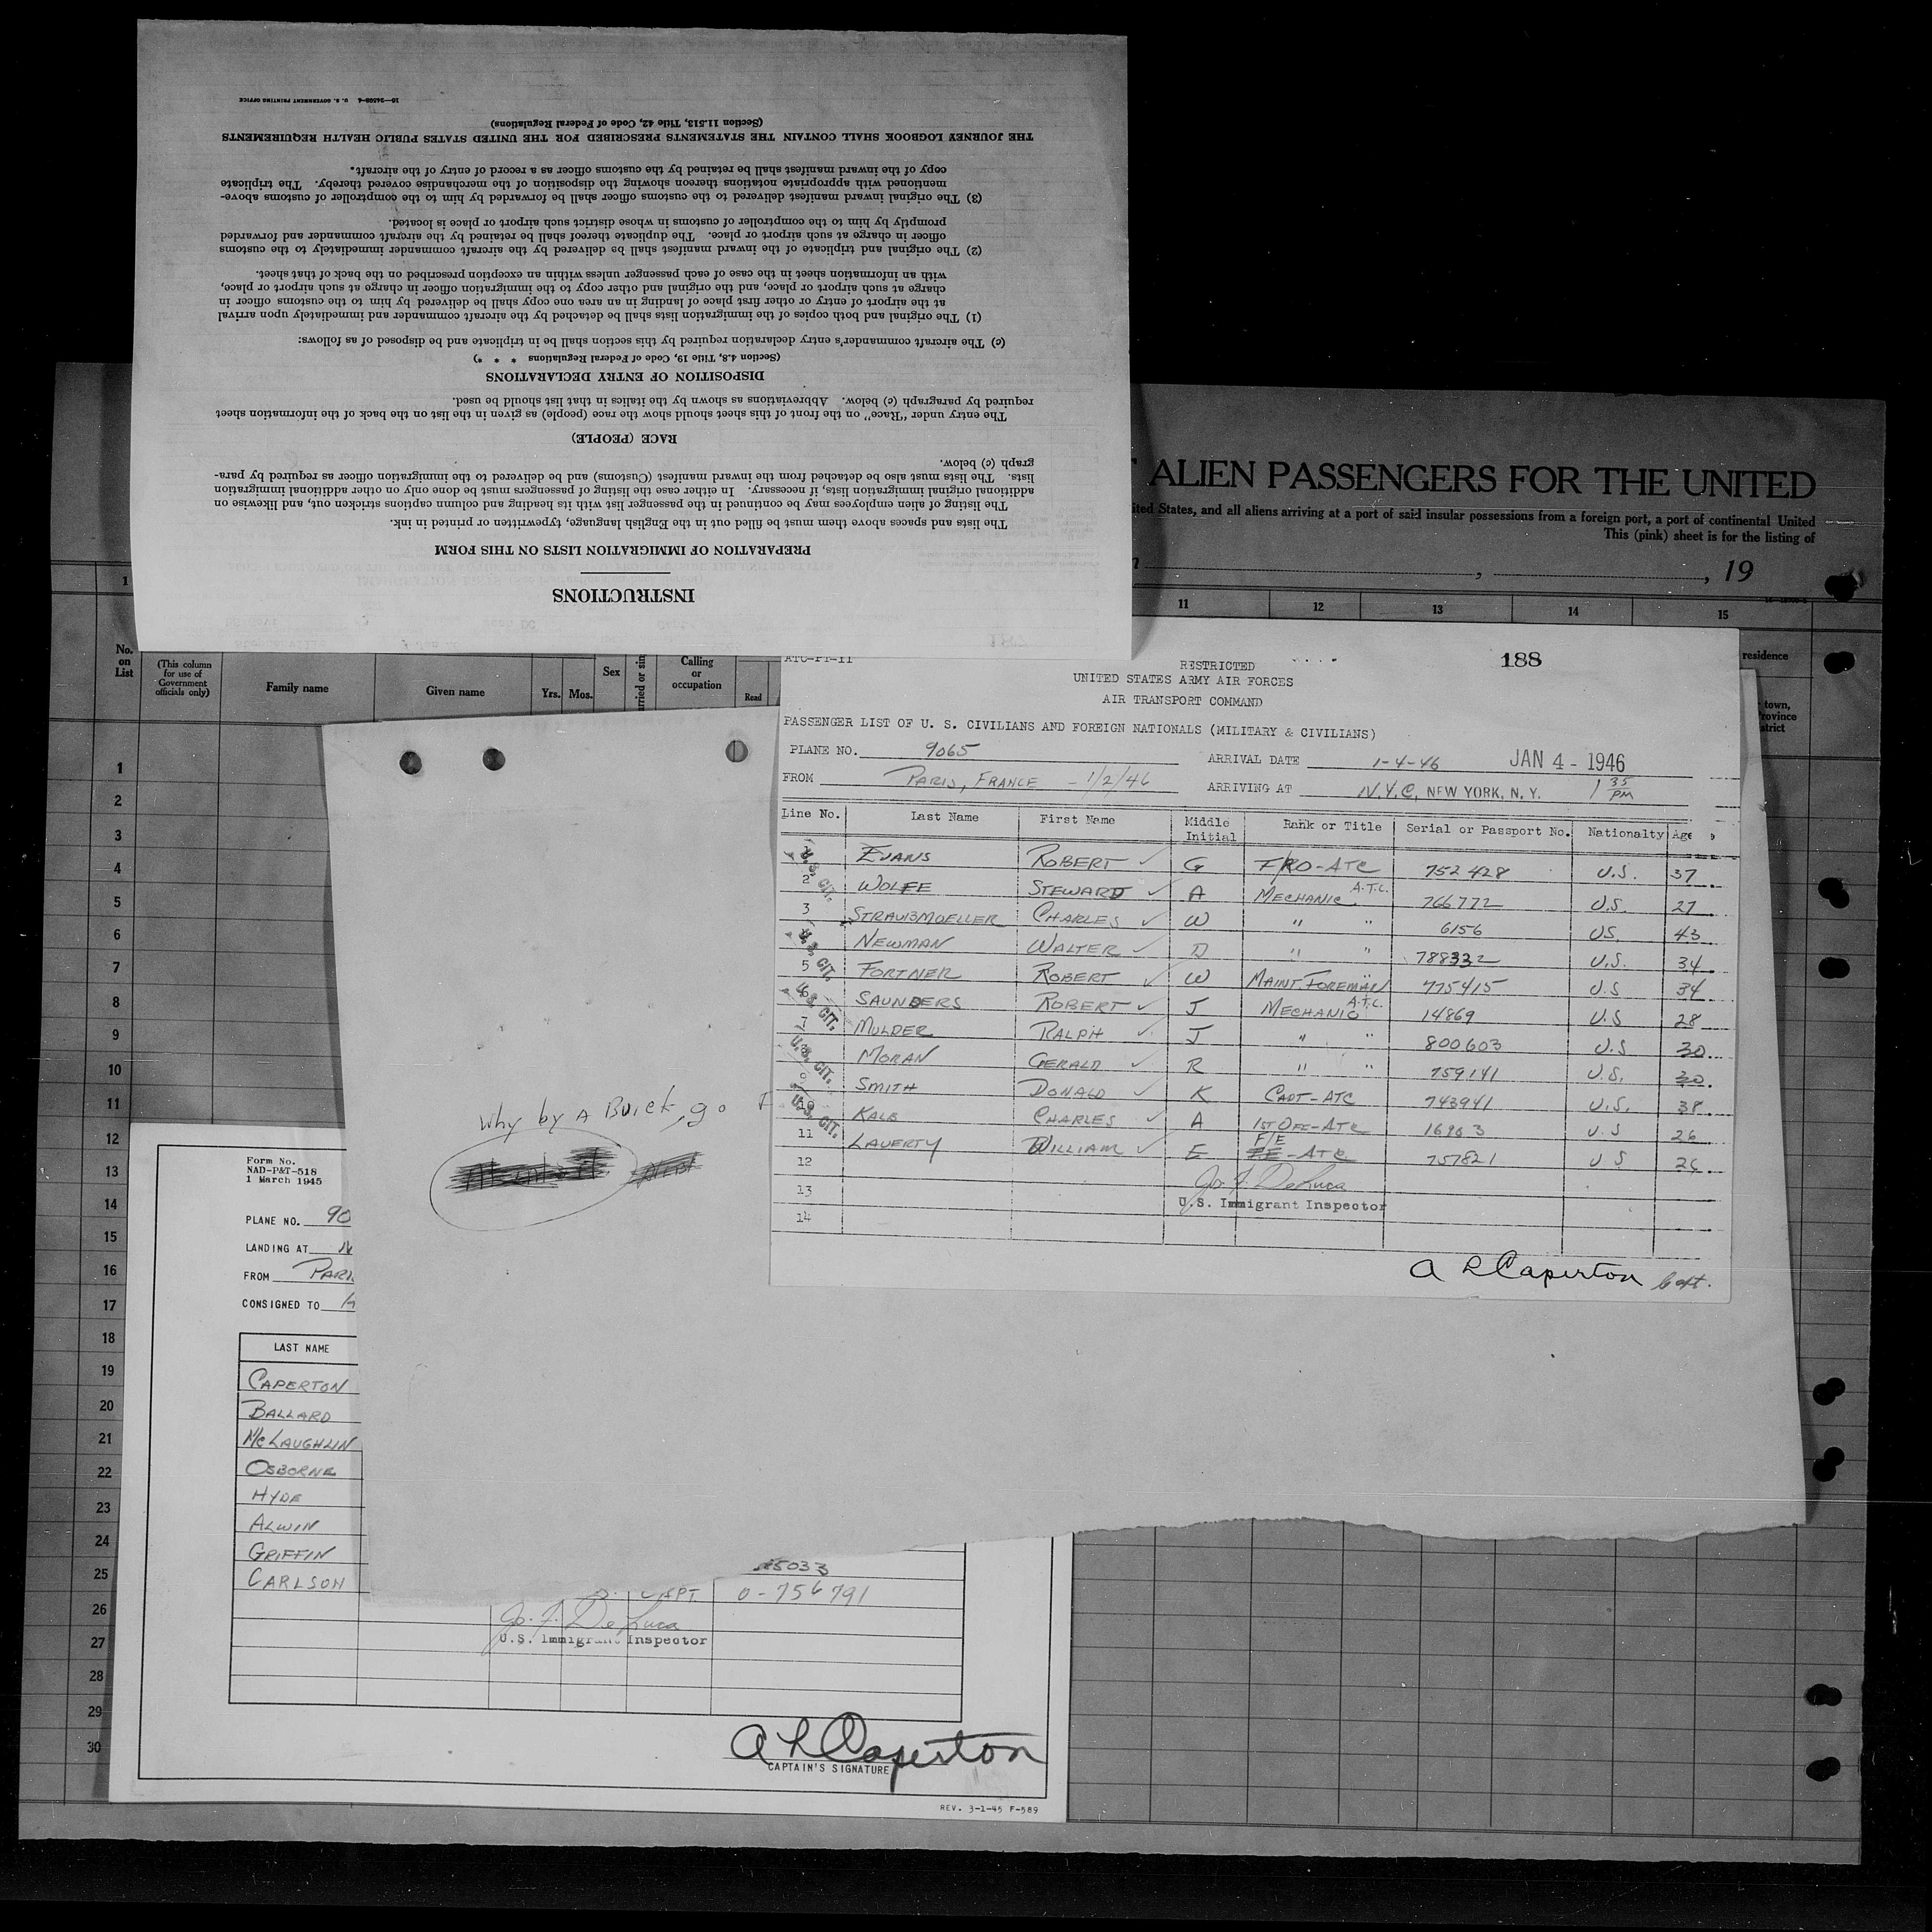 16—24508-4 U. S. GOVERNMENT PRINTING OFFICE
INSTRUCTIONS
PREPARATION OF IMMIGRATION LISTS ON THIS FORM
The lists and spaces above them must be filled out in the English language, typewritten or printed in ink.
The listing of alien employees may be continued in the passenger list with its heading and column captions stricken out, and likewise on
additional original immigration lists, if necessary. In either case the listing of passengers must be done only on other additional immigration
lists. The lists must also be detached from the inward manifest (Customs) and be delivered to the immigration officer as required by para-
graph (c) below.
RACE (PEOPLE)
The entry under "Race" on the front of this sheet should show the race (people) as given in the list on the back of the information sheet
required by paragraph (c) below. Abbreviations as shown by the italics in that list should be used.
DISPOSITION OF ENTRY DECLARATIONS
(Section 4.8, Title 19, Code of Federal Regulations * * *)
(c) The aircraft commander's entry declaration required by this section shall be in triplicate and be disposed of as follows:
(1) The original and both copies of the immigration lists shall be detached by the aircraft commander and immediately upon arrival
at the airport of entry or other first place of landing in an area one copy shall be delivered by him to the customs officer in
charge at such airport or place, and the original and other copy to the immigration officer in charge at such airport or place,
with an information sheet in the case of each passenger unless within an exception prescribed on the back of that sheet.
(2) The original and triplicate of the inward manifest shall be delivered by the aircraft commander immediately to the customs
officer in charge at such airport or place. The duplicate thereof shall be retained by the aircraft commander and forwarded
promptly by him to the comptroller of customs in whose district such airport or place is located.
(3) The original inward manifest delivered to the customs officer shall be forwarded by him to the comptroller of customs above-
mentioned with appropriate notations thereon showing the disposition of the merchandise covered thereby. The triplicate
copy of the inward manifest shall be retained by the customs officer as a record of entry of the aircraft.
THE JOURNEY LOGBOOK SHALL CONTAIN THE STATEMENTS PRESCRIBED FOR THE UNITED STATES PUBLIC HEALTH REQUIREMENTS
(Section 11.513, Title 42, Code of Federal Regulations)
ALIEN PASSENGERS FOR THE UNITED
ited States, and all aliens arriving at a port of said insular possessions from a foreign port, a port of continental United
This (pink) sheet is for the listing of
, , 19
1 11 12 13 14 15
No. on List
(This column for use of Government officials only)
Family name
Given name
Yrs. Mos.
Sex
arried or sin
Calling or occupation
Read
residence
town, rovince strict
1
2
3
4
5
6
7
8
9
10
11
12
13
14
15
16
17
18
19
20
21
22
23
24
25
26
27
28
29
30
ATC-PT-11
RESTRICTED
188
UNITED STATES ARMY AIR FORCES
AIR TRANSPORT COMMAND
PASSENGER LIST OF U. S. CIVILIANS AND FOREIGN NATIONALS (MILITARY & CIVILIANS)
PLANE NO. 9065 ARRIVAL DATE 1-4-46 JAN 4 - 1946
FROM PARIS, FRANCE - 1/2/46 ARRIVING AT N.Y.C. NEW YORK, N. Y. 1 35 PM
Line No. Last Name First Name Middle Initial Rank or Title Serial or Passport No. Nationalty Age
1 EVANS ROBERT ✓ G F/RO-ATC 752428 U.S. 37
2 WOLFE STEWARD ✓ A MECHANIC A.T.C. 766772 U.S. 27
3 STRAWBMOELLER CHARLES ✓ W " " 6156 US. 43
4 NEWMAN WALTER ✓ D " " 788332 U.S. 34
5 FORTNER ROBERT ✓ W MAINT FOREMAN 775415 U.S 34
6 SAUNDERS ROBERT ✓ J MECHANIC A.T.C. 14869 U.S 28
7 MULDER RALPH ✓ J " " 800603 U.S 30
8 MORAN GERALD ✓ R " " 759141 U.S. 30
9 SMITH DONALD ✓ K CAPT-ATC 743941 U.S. 38
10 KALB CHARLES ✓ A 1ST OFF-ATC 16983 U.S 26
11 LAVERTY WILLIAM ✓ E F/E FE-ATC 757821 U S 26
12
13
14
U.S. CIT.
U.S. CIT.
U.S. CIT.
U.S. CIT.
U.S. CIT.
Jo. F. DeLuca
U.S. Immigrant Inspector
A L Caperton Capt.
Why by A Buick, go
Form No.
NAD-P&T-518
1 March 1945
PLANE NO. 90
LANDING AT N
FROM PARI
CONSIGNED TO
LAST NAME
CAPERTON
BALLARD
McLAUGHLIN
OSBORNE
HYDE
ALWIN
GRIFFIN 5033
CARLSON CAPT O-756791
Jo. F. DeLuca
U.S. Immigrant Inspector
A L Caperton
CAPTAIN'S SIGNATURE
REV. 3-1-45 F-589